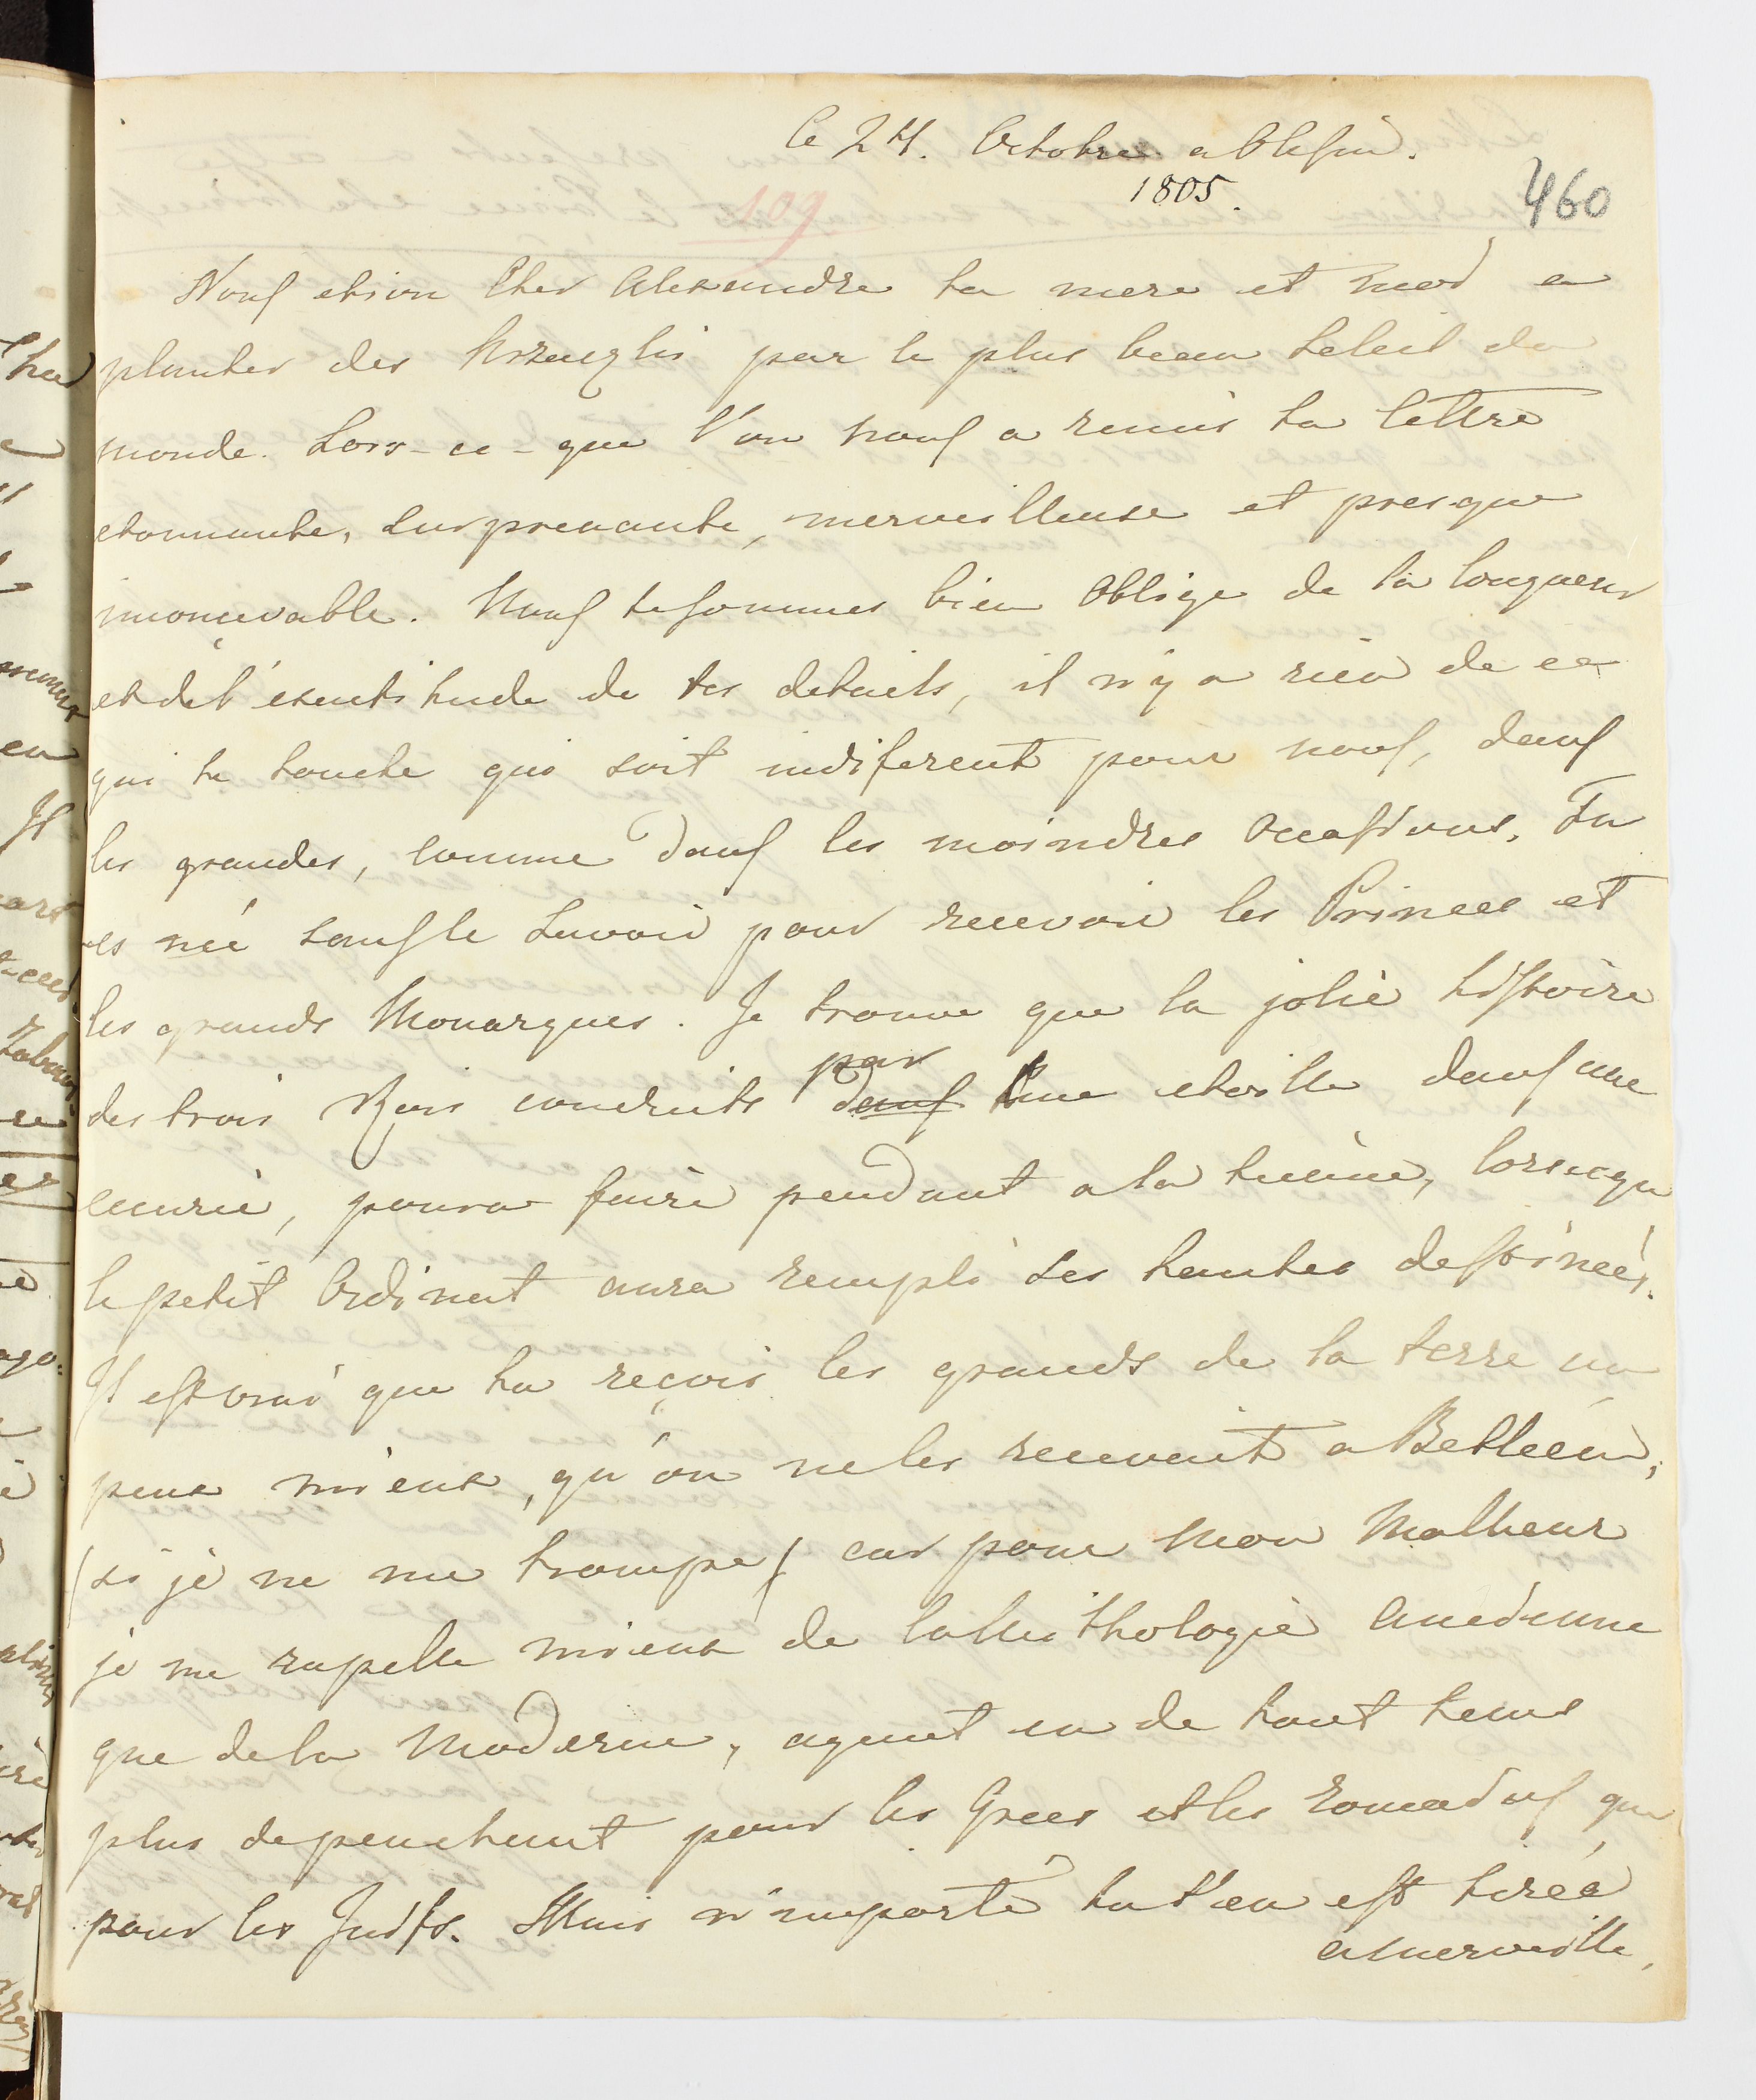 le 24. Octobre a Olesin.
1805.
460
109
Nous etion Cher Alexandre ta mere et moi a
planter des Krzeuzlis par le plus beau soleil du
monde. Lors-ce-que l'on nous a remis ta lettre
etonnante, surprenante, merveilleuse et presque
inoncevable. Nous te sommes bien oblige de la longueur
et de l'exactitude de tes details, il n'y a rien de ce
qui te touche qui soit indiferent pour nous, dans
les grandes, comme dans les moindres occasions. Tu
es né sans le savoir pour recevoir les Princes et
les grands Monarques. Je trouve que la jolie histoire
des trois Rois conduits par une etoille dans une
ecurie, poura faire pendant a la tienne, lorsecque
le petit Ordinat aura rempli ses hautes destinées.
Il est vrai que tu reçois les grands de la terre un
peux mieux, qu'on ne les recevait a Betleem,
(si je ne me trompe) car pour mon Malheur
je me rapelle mieux de la Mithologie ancienne
que de la Moderne, ayant eu de tout tems
plus de penchant pour les Grecs et les romains que
pour les Juifs. Mais n'importe tu t'en est tirée
a merveille,